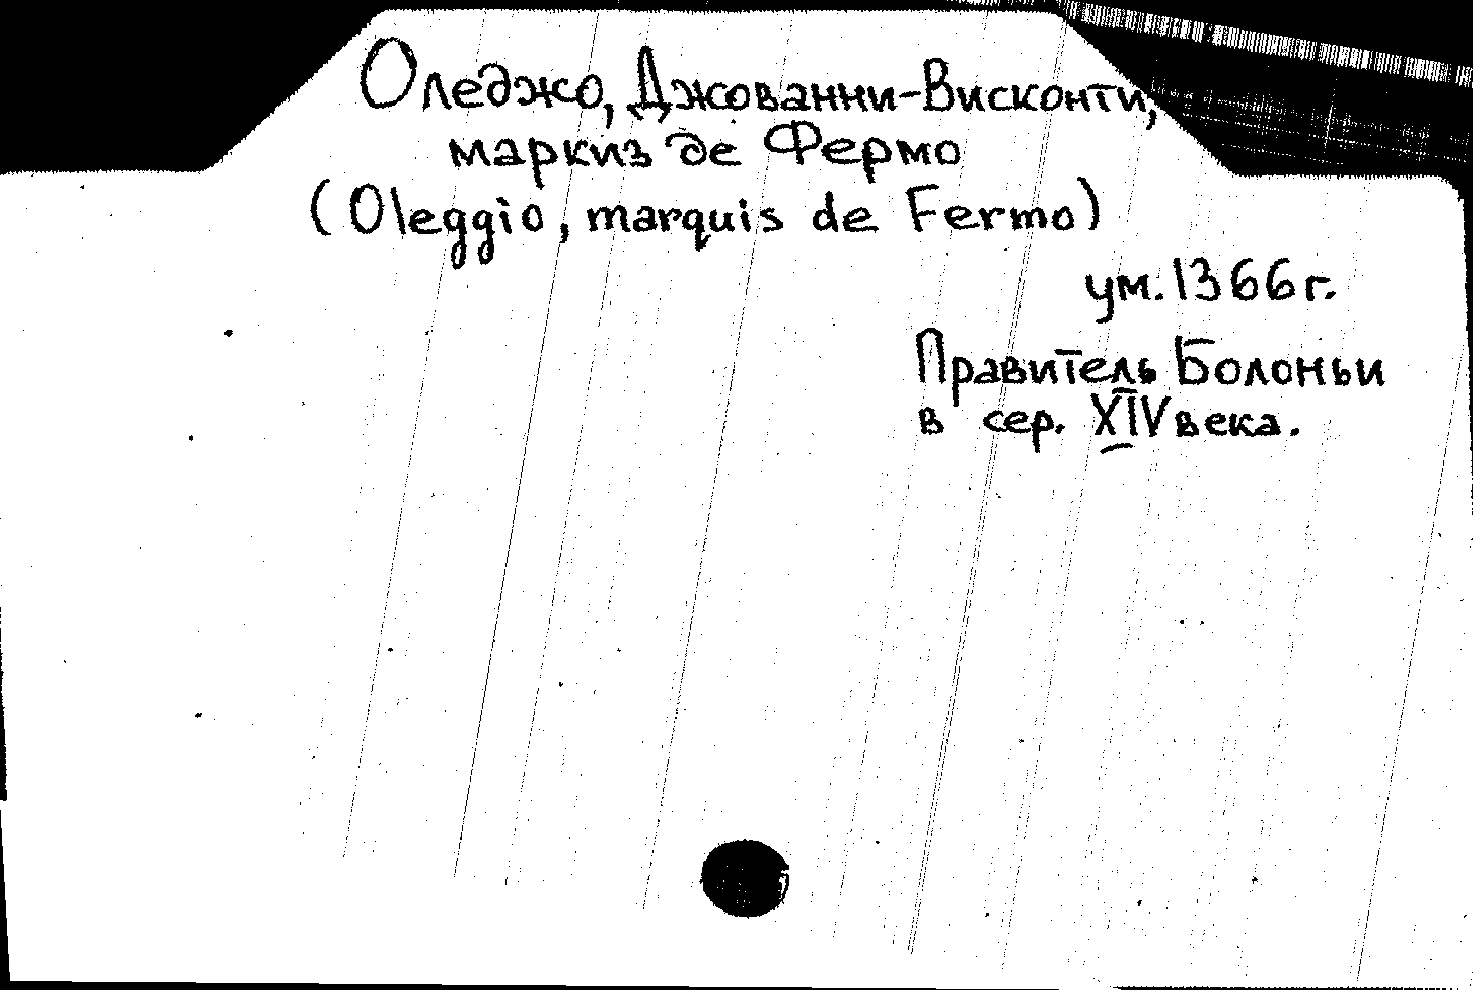 Оледжо, Джованни-Висконти,
маркиз де Фермо
(Oleggio, marquis de Fermo)
ум. 1366 г.
Правитель Болоньи
в сер. XIV века.